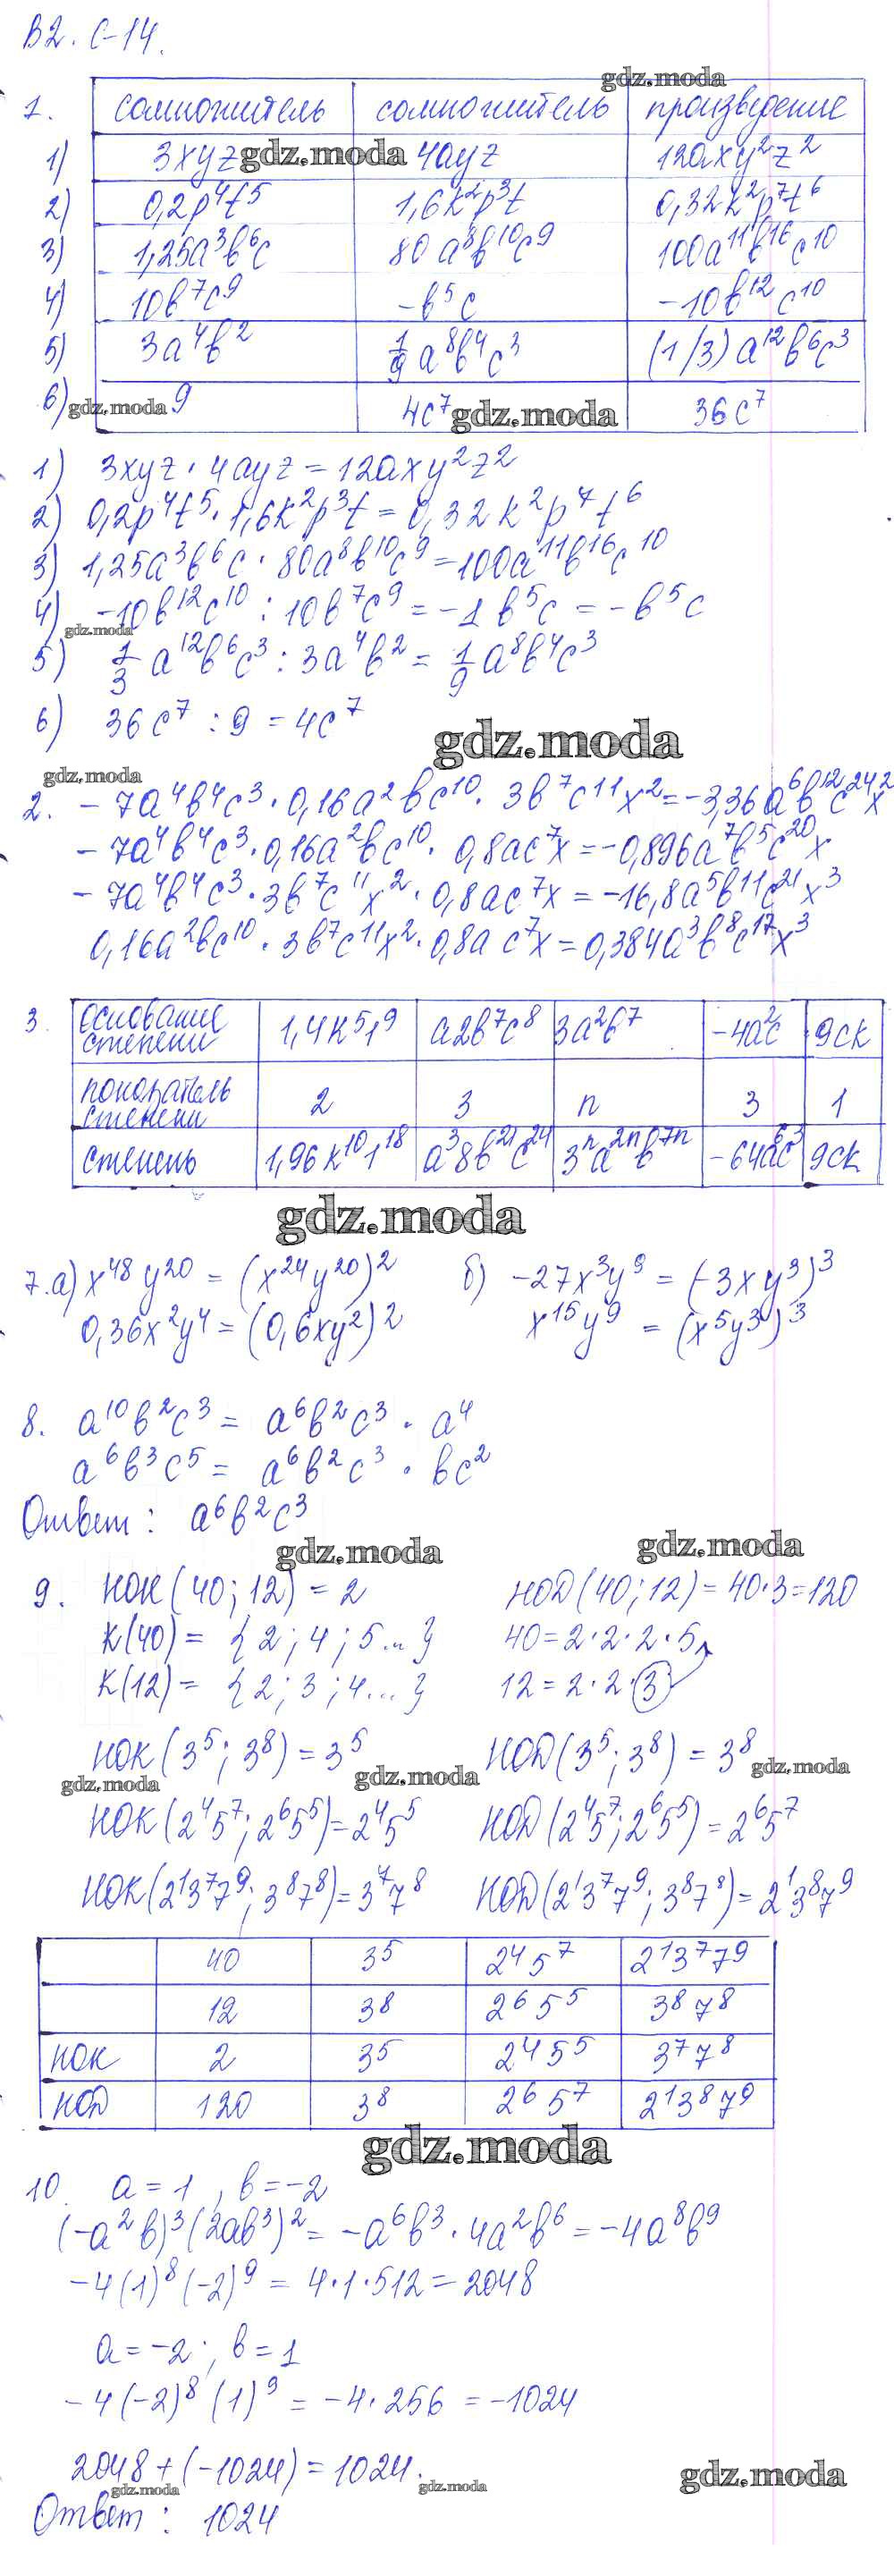 В2. С-14.
gdz.moda
1. сомножитель сомножитель произведение
1) 3xyz gdz.moda 4ayz 12axy²z²
2) 0,2p⁴t⁵ 1,6k²p³t 0,32k²p⁷t⁶
3) 1,25a³b⁶c 80a⁸b¹⁰c⁹ 100a¹¹b¹⁶c¹⁰
4) 10b⁷c⁹ -b⁵c -10b¹²c¹⁰
5) 3a⁴b² 1/9 a⁸b⁴c³ (1/3)a¹²b⁶c³
6) gdz.moda 9 4c⁷ gdz.moda 36c⁷
1) 3xyz · 4ayz = 12axy²z²
2) 0,2p⁴t⁵ · 1,6k²p³t = 0,32k²p⁷t⁶
3) 1,25a³b⁶c · 80a⁸b¹⁰c⁹ = 100a¹¹b¹⁶c¹⁰
4) -10b¹²c¹⁰ : 10b⁷c⁹ = -1b⁵c = -b⁵c
gdz.moda
5) 1/3 a¹²b⁶c³ : 3a⁴b² = 1/9 a⁸b⁴c³
6) 36c⁷ : 9 = 4c⁷
gdz.moda
gdz.moda
2. -7a⁴b⁴c³ · 0,16a²bc¹⁰ · 3b⁷c¹¹x² = -3,36a⁶b¹²c²⁴x²
-7a⁴b⁴c³ · 0,16a²bc¹⁰ · 0,8ac⁷x = -0,896a⁷b⁵c²⁰x
-7a⁴b⁴c³ · 3b⁷c¹¹x² · 0,8ac⁷x = -16,8a⁵b¹¹c²¹x³
0,16a²bc¹⁰ · 3b⁷c¹¹x² · 0,8ac⁷x = 0,384a³b⁸c¹⁷x³
3. основание степени 1,4k⁵1⁹ a2b⁷c⁸ 3a²b⁷ -4a²c 9ck
показатель степени 2 3 n 3 1
степень 1,96k¹⁰1¹⁸ a³8b²¹c²⁴ 3ⁿa²ⁿb⁷ⁿ -64a⁶c³ 9ck
gdz.moda
7. а) x⁴⁸y²⁰ = (x²⁴y²⁰)² б) -27x³y⁹ = (-3xy³)³
0,36x²y⁴ = (0,6xy²)² x¹⁵y⁹ = (x⁵y³)³
8. a¹⁰b²c³ = a⁶b²c³ · a⁴
a⁶b³c⁵ = a⁶b²c³ · bc²
Ответ: a⁶b²c³
gdz.moda gdz.moda
9. НОК(40; 12) = 2 НОД(40; 12) = 40·3 = 120
К(40) = {2; 4; 5...} 40 = 2·2·2·5
К(12) = {2; 3; 4...} 12 = 2·2·3
НОК(3⁵; 3⁸) = 3⁵ НОД(3⁵; 3⁸) = 3⁸ gdz.moda
gdz.moda gdz.moda
НОК(2⁴5⁷; 2⁶5⁵) = 2⁴5⁵ НОД(2⁴5⁷; 2⁶5⁵) = 2⁶5⁷
НОК(2¹3⁷7⁹; 3⁸7⁸) = 3⁷7⁸ НОД(2¹3⁷7⁹; 3⁸7⁸) = 2¹3⁸7⁹
40 3⁵ 2⁴5⁷ 2¹3⁷7⁹
12 3⁸ 2⁶5⁵ 3⁸7⁸
НОК 2 3⁵ 2⁴5⁵ 3⁷7⁸
НОД 120 3⁸ 2⁶5⁷ 2¹3⁸7⁹
gdz.moda
10. a = 1, b = -2
(-a²b)³(2ab³)² = -a⁶b³ · 4a²b⁶ = -4a⁸b⁹
-4(1)⁸(-2)⁹ = 4·1·512 = 2048
a = -2; b = 1
-4(-2)⁸(1)⁹ = -4·256 = -1024
2048 + (-1024) = 1024.
gdz.moda gdz.moda gdz.moda
Ответ: 1024